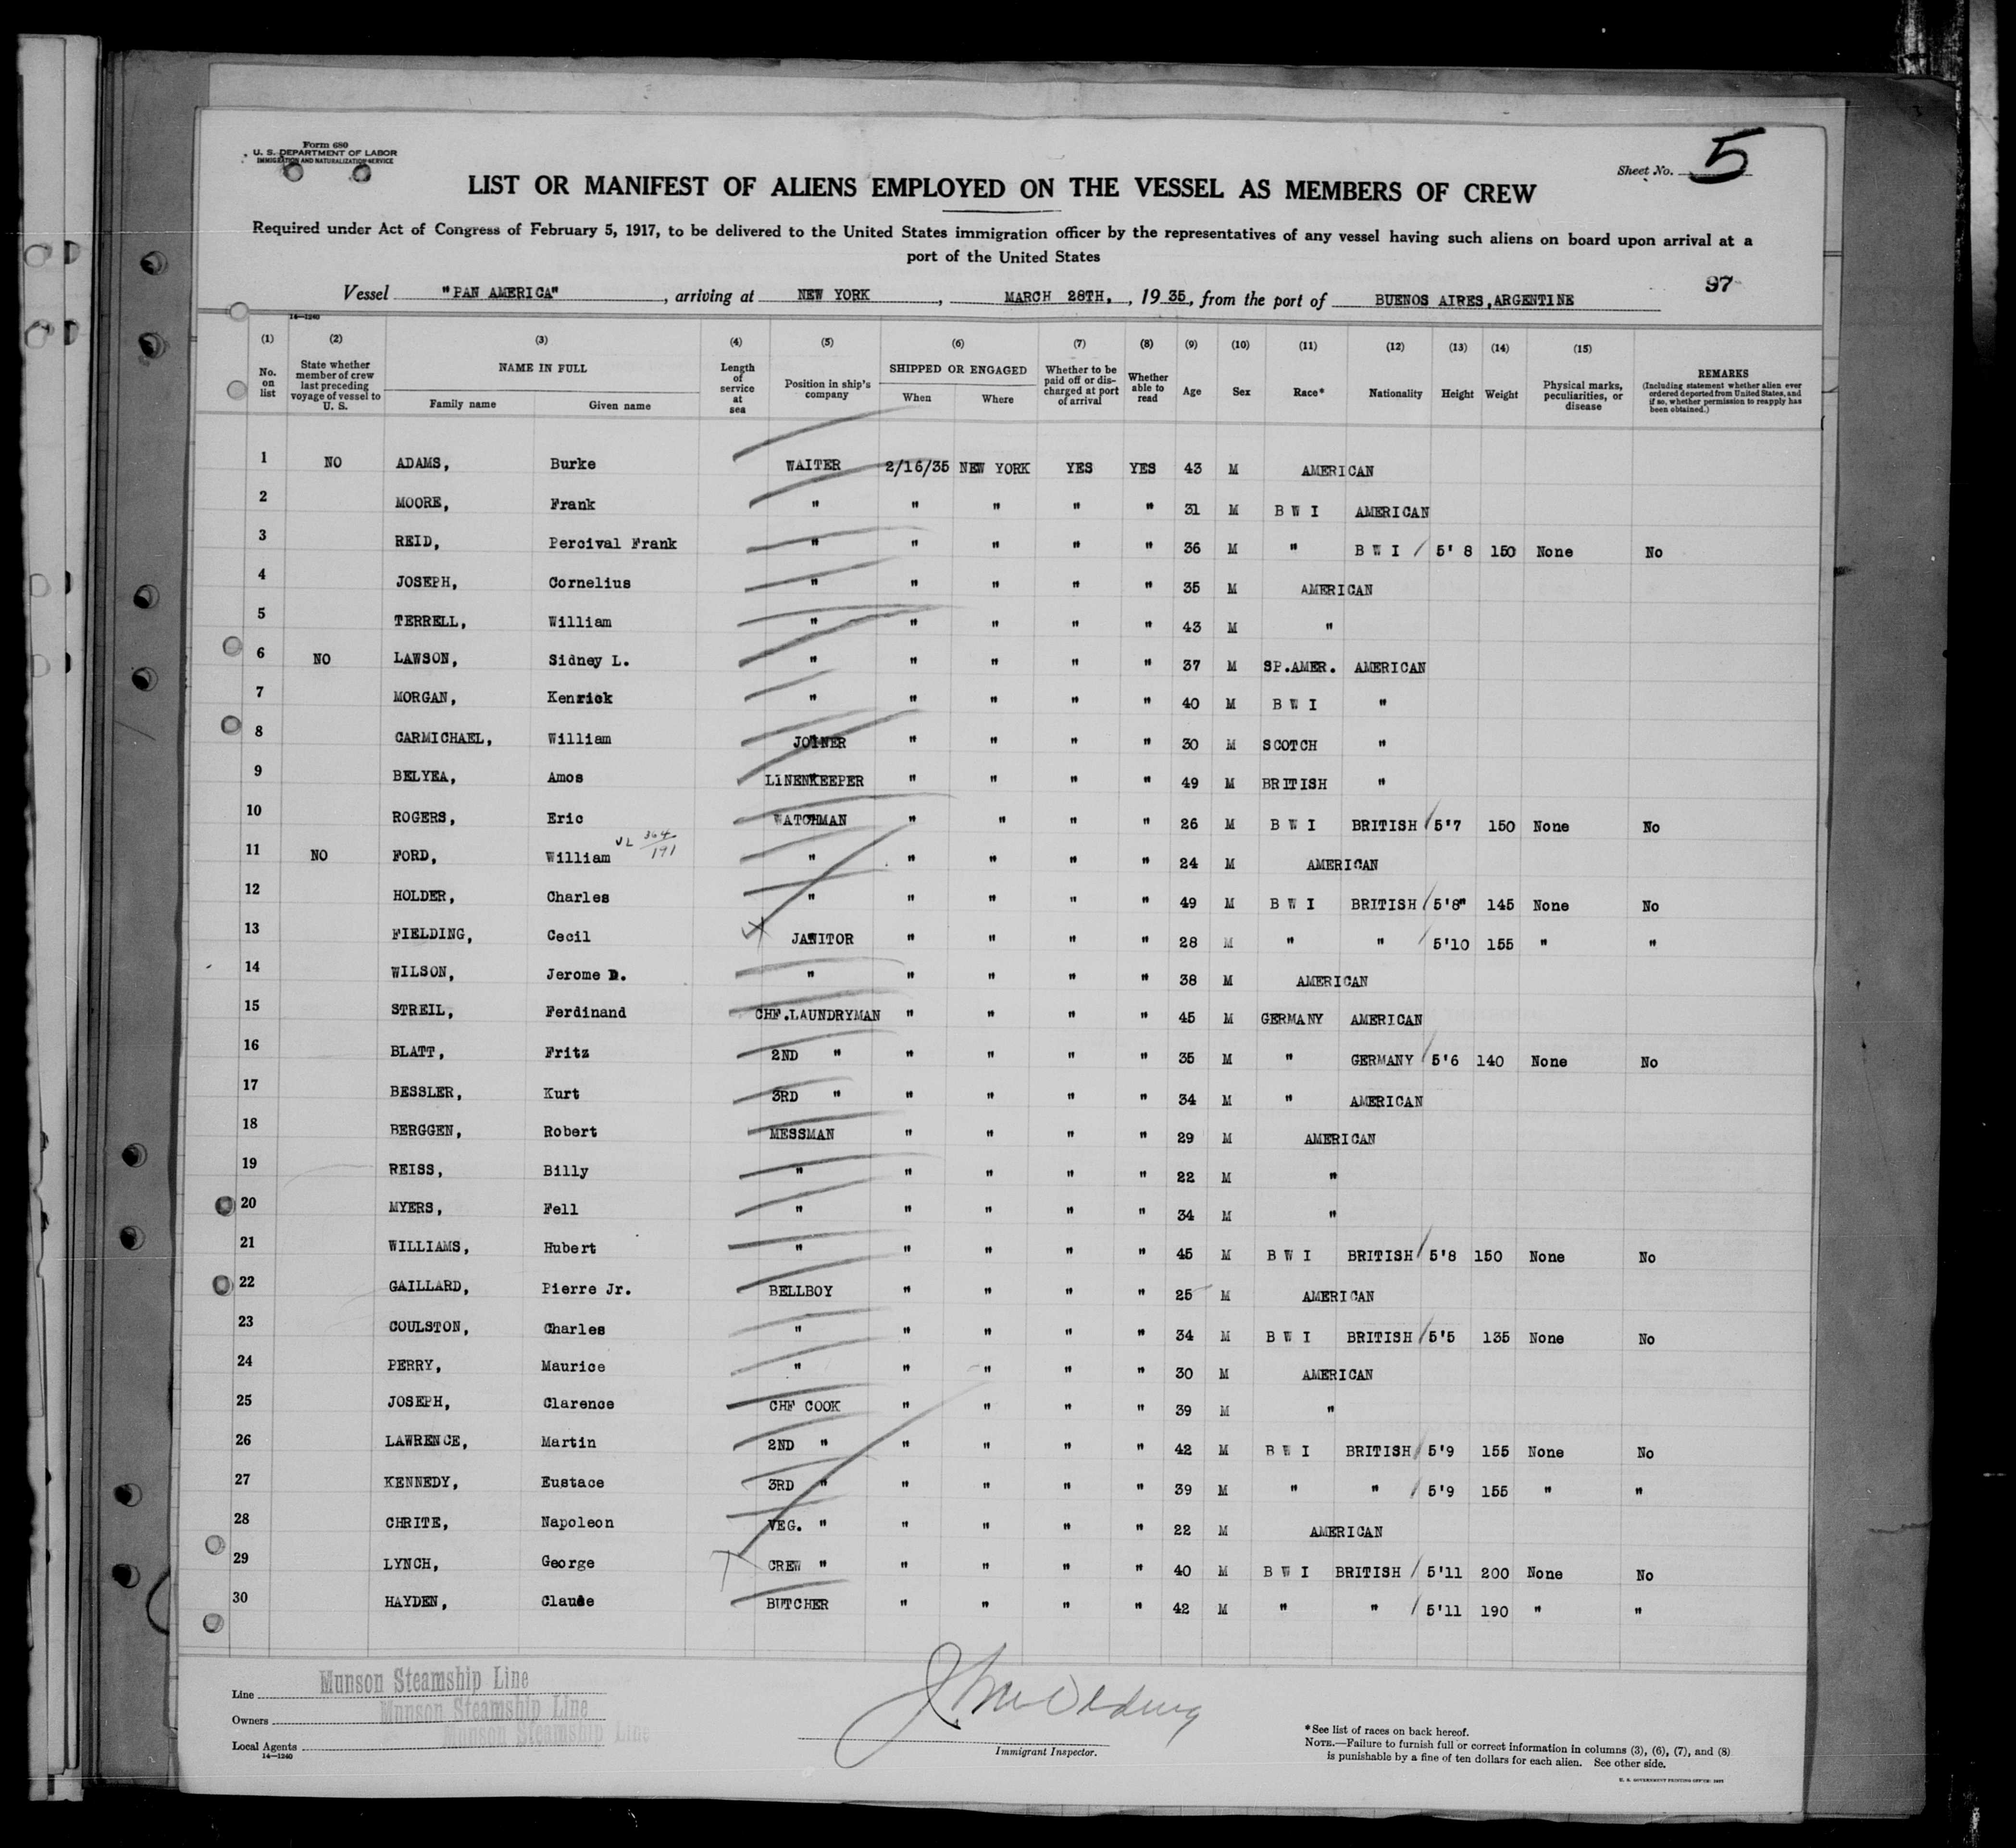 Form 680
U. S. DEPARTMENT OF LABOR
IMMIGRATION AND NATURALIZATION SERVICE
Sheet No. 5
LIST OR MANIFEST OF ALIENS EMPLOYED ON THE VESSEL AS MEMBERS OF CREW
Required under Act of Congress of February 5, 1917, to be delivered to the United States immigration officer by the representatives of any vessel having such aliens on board upon arrival at a
port of the United States
97
Vessel "PAN AMERICA", arriving at NEW YORK, MARCH 28TH, , 19 35, from the port of BUENOS AIRES, ARGENTINE
14—1240
(1) (2) (3) (4) (5) (6) (7) (8) (9) (10) (11) (12) (13) (14) (15)
No. on list State whether member of crew last preceding voyage of vessel to U. S. NAME IN FULL Family name Given name Length of service at sea Position in ship's company SHIPPED OR ENGAGED When Where Whether to be paid off or discharged at port of arrival Whether able to read Age Sex Race* Nationality Height Weight Physical marks, peculiarities, or disease REMARKS (Including statement whether alien ever ordered deported from United States, and if so, whether permission to reapply has been obtained.)
1 NO ADAMS, Burke WAITER 2/16/35 NEW YORK YES YES 43 M AMERICAN
2 MOORE, Frank " " " " " 31 M B W I AMERICAN
3 REID, Percival Frank " " " " " 36 M " B W I / 5' 8 150 None No
4 JOSEPH, Cornelius " " " " " 35 M AMERICAN
5 TERRELL, William " " " " " 43 M "
6 NO LAWSON, Sidney L. " " " " " 37 M SP.AMER. AMERICAN
7 MORGAN, Kenrick " " " " " 40 M B W I "
8 CARMICHAEL, William JOINER " " " " 30 M SCOTCH "
9 BELYEA, Amos LINENKEEPER " " " " 49 M BRITISH "
10 ROGERS, Eric WATCHMAN " " " " 26 M B W I BRITISH / 5'7 150 None No
11 NO FORD, William VL 364/191 " " " " " 24 M AMERICAN
12 HOLDER, Charles " " " " " 49 M B W I BRITISH / 5'8" 145 None No
13 FIELDING, Cecil JANITOR " " " " 28 M " " / 5'10 155 " "
14 WILSON, Jerome D. " " " " " 38 M AMERICAN
15 STREIL, Ferdinand CHF.LAUNDRYMAN " " " " 45 M GERMANY AMERICAN
16 BLATT, Fritz 2ND " " " " " 35 M " GERMANY / 5'6 140 None No
17 BESSLER, Kurt 3RD " " " " " 34 M " AMERICAN
18 BERGGEN, Robert MESSMAN " " " " 29 M AMERICAN
19 REISS, Billy " " " " " 22 M "
20 MYERS, Fell " " " " " 34 M "
21 WILLIAMS, Hubert " " " " " 45 M B W I BRITISH / 5'8 150 None No
22 GAILLARD, Pierre Jr. BELLBOY " " " " 25 M AMERICAN
23 COULSTON, Charles " " " " " 34 M B W I BRITISH / 5'5 135 None No
24 PERRY, Maurice " " " " " 30 M AMERICAN
25 JOSEPH, Clarence CHF COOK " " " " 39 M "
26 LAWRENCE, Martin 2ND " " " " " 42 M B W I BRITISH / 5'9 155 None No
27 KENNEDY, Eustace 3RD " " " " " 39 M " " / 5'9 155 " "
28 CHRITE, Napoleon VEG. " " " " " 22 M AMERICAN
29 LYNCH, George CREW " " " " " 40 M B W I BRITISH / 5'11 200 None No
30 HAYDEN, Claude BUTCHER " " " " 42 M " " / 5'11 190 " "
Line Munson Steamship Line
Owners Munson Steamship Line
Local Agents Munson Steamship Line
14—1240
Immigrant Inspector.
*See list of races on back hereof.
NOTE.—Failure to furnish full or correct information in columns (3), (6), (7), and (8)
is punishable by a fine of ten dollars for each alien. See other side.